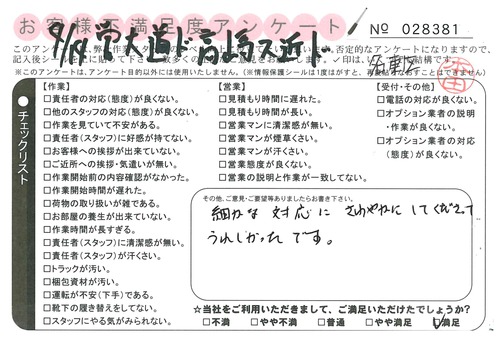 お客様不満足度アンケート
№ 028381
このアンケートは、弊社
否定的なアンケートになりますので、
記入後シールを
✓印は
結構です。
(※このアンケートは、アンケート目的以外には使用いたしません。)(※情報保護シールは1度はがすと、再
できません)
チェックリスト
【作業】
□責任者の対応(態度)が良くない。
□他のスタッフの対応(態度)が良くない。
□作業を見ていて不安がある。
□責任者(スタッフ)に好感が持てない。
□お客様への挨拶が出来ていない。
□ご近所への挨拶・気遣いが無い。
□作業開始前の内容確認がなかった。
□作業開始時間が遅れた。
□荷物の取り扱いが雑である。
□お部屋の養生が出来ていない。
□作業時間が長すぎる。
□責任者(スタッフ)に清潔感が無い。
□責任者(スタッフ)が汗くさい。
□トラックが汚い。
□梱包資材が汚い。
□運転が不安(下手)である。
□靴下の履き替えをしてない。
□スタッフにやる気がみられない。
【営業】
□見積もり時間に遅れた。
□見積もり時間が長い。
□営業マンに清潔感が無い。
□営業マンが煙草くさい。
□営業マンが汗くさい。
□営業態度が良くない。
□営業の説明と作業が一致してない。
【受付・その他】
□電話の対応が良くない。
□オプション業者の説明
・作業が良くない。
□オプション業者の対応
(態度)が良くない。
その他、ご意見・ご要望等ありましたらお書き下さい。
細かな対応にさわやかにしてくださって
うれしかったです。
☆当社をご利用いただきまして、ご満足いただけたでしょうか?
□不満 □やや不満 □普通 □やや満足 ☑満足